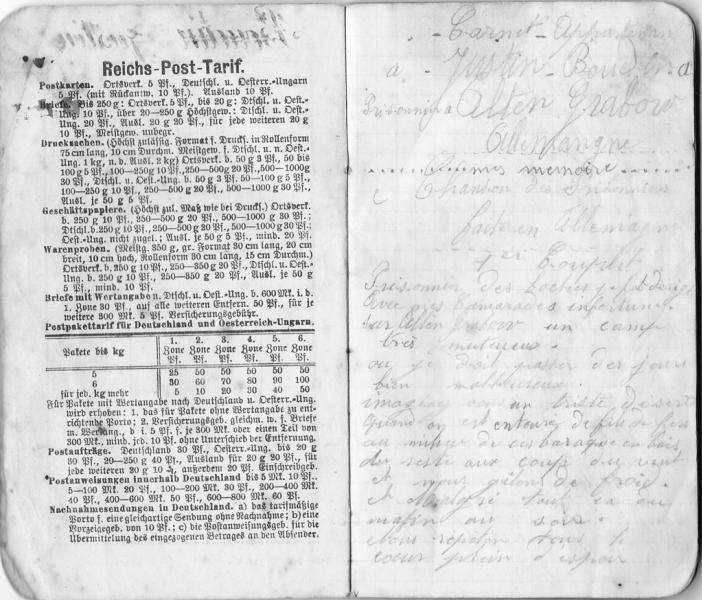 Reichs-Post-Tarif.
Postkarten. Ortsverk. 5 Pf., Deutschl. u. Oesterr.-Ungarn
5 Pf. (mit Rückantw. 10 Pf.). Ausland 10 Pf.
Briefe. Bis 250 g: Ortsverk. 5 Pf., bis 20 g: Dtschl. u. Oest.-
Ung. 10 Pf., über 20—250 g Höchstgew.: Dtschl. u. Oest.-
Ung. 20 Pf., Ausl. 20 g 20 Pf., für jede weiteren 20 g
10 Pf., Meistgew. unbegr.
Drucksachen. (Höchst zulässig. Format f. Drucks. in Rollenform
75 cm lang, 10 cm Durchm. Meistgew. f. Dtschl. u. n. Oest.-
Ung. 1 kg, n. d. Ausl. 2 kg) Ortsverk. b. 50 g 3 Pf., 50 bis
100 g 5 Pf., 100—250 g 10 Pf., 250—500 g 20 Pf., 500—1000 g
30 Pf., Dtschl. u. Oest.-Ung. b. 50 g 3 Pf. 50—100 g 5 Pf.,
100—250 g 10 Pf., 250—500 g 20 Pf., 500—1000 g 30 Pf.,
Ausl. je 50 g 5 Pf.
Geschäftspapiere. (Höchst zul. Maß wie bei Druck.) Ortsverk.
b. 250 g 10 Pf., 250—500 g 20 Pf., 500—1000 g 30 Pf.;
Dtschl. b. 250 g 10 Pf., 250—500 g 20 Pf., 500—1000 g 30 Pf.;
Oest.-Ung. nicht zugel.; Ausl. je 50 g 5 Pf., mind. 20 Pf.
Warenproben. (Meistg. 350 g, gr. Format 30 cm lang, 20 cm
breit, 10 cm hoch, Rollenform 30 cm lang, 15 cm Durchm.)
Ortsverk. b. 250 g 10 Pf., 250—350 g 20 Pf., Dtschl. u. Oest.-
Ung. b. 250 g 10 Pf., 250—350 g 20 Pf., Ausl. je 50 g
5 Pf., mind. 10 Pf.
Briefe mit Wertangabe n. Dtschl. u. Oest.-Ung. b. 600 Mk. i. d.
1. Zone 30 Pf., auf alle weiteren Entfern. 50 Pf., für je
weitere 300 Mk. 5 Pf. Versicherungsgebühr.
Postpakettarif für Deutschland und Oesterreich-Ungarn.
Pakete bis kg 1. Zone Pf. 2. Zone Pf. 3. Zone Pf. 4. Zone Pf. 5. Zone Pf. 6. Zone Pf.
5 25 50 50 50 50 50
6 30 60 70 80 90 100
für jed. kg mehr 5 10 20 30 40 50
Für Pakete mit Wertangabe nach Deutschland u. Oesterr.-Ung.
wird erhoben: 1. das für Pakete ohne Wertangabe zu ent-
richtende Porto; 2. Versicherungsgeb. gleichm. w. f. Briefe
m. Wertang., d. i. 5 Pf. f. je 300 Mk. oder einen Teil von
300 Mk., mind. jed. 10 Pf. ohne Unterschied der Entfernung.
Postaufträge. Deutschland 30 Pf., Oesterr.-Ung. bis 20 g
30 Pf., 20—250 g 40 Pf., Ausland für 20 g 20 Pf., für
jede weiteren 20 g 10 Pf., außerdem 20 Pf. Einschreibgeb.
Postanweisungen innerhalb Deutschland bis 5 Mk. 10 Pf.,
5—100 Mk. 20 Pf., 100—200 Mk. 30 Pf., 200—400 Mk.
40 Pf., 400—600 Mk. 50 Pf., 600—800 Mk. 60 Pf.
Nachnahmesendungen in Deutschland. a) das tarifmäßige
Porto f. eine gleichartige Sendung ohne Nachnahme; b) eine
Vorzeigegeb. von 10 Pf.; c) die Postanweisungsgeb. für die
Übermittelung des eingezogenen Betrages an den Absender.
Carnet - Appartenan
a - Justin - Boudin
Prisonnier a Alten Grabow
Allemangne
Chanson des Prisonniers
fait en Allemagne
1er Couplet
Prisonnier des Boches
avec mes Camarades infortunés
sur Alten Grabow un camp
très
ou je doit passer des jours
bien malheureux.
un triste désert
Quand on est entouré de
au milieu de ces baraque en bois
du reste aux coup du vent
et nous de froid.
et malgré tout ça du
matin au soir.
nous tous le
coeur plein d'espoir